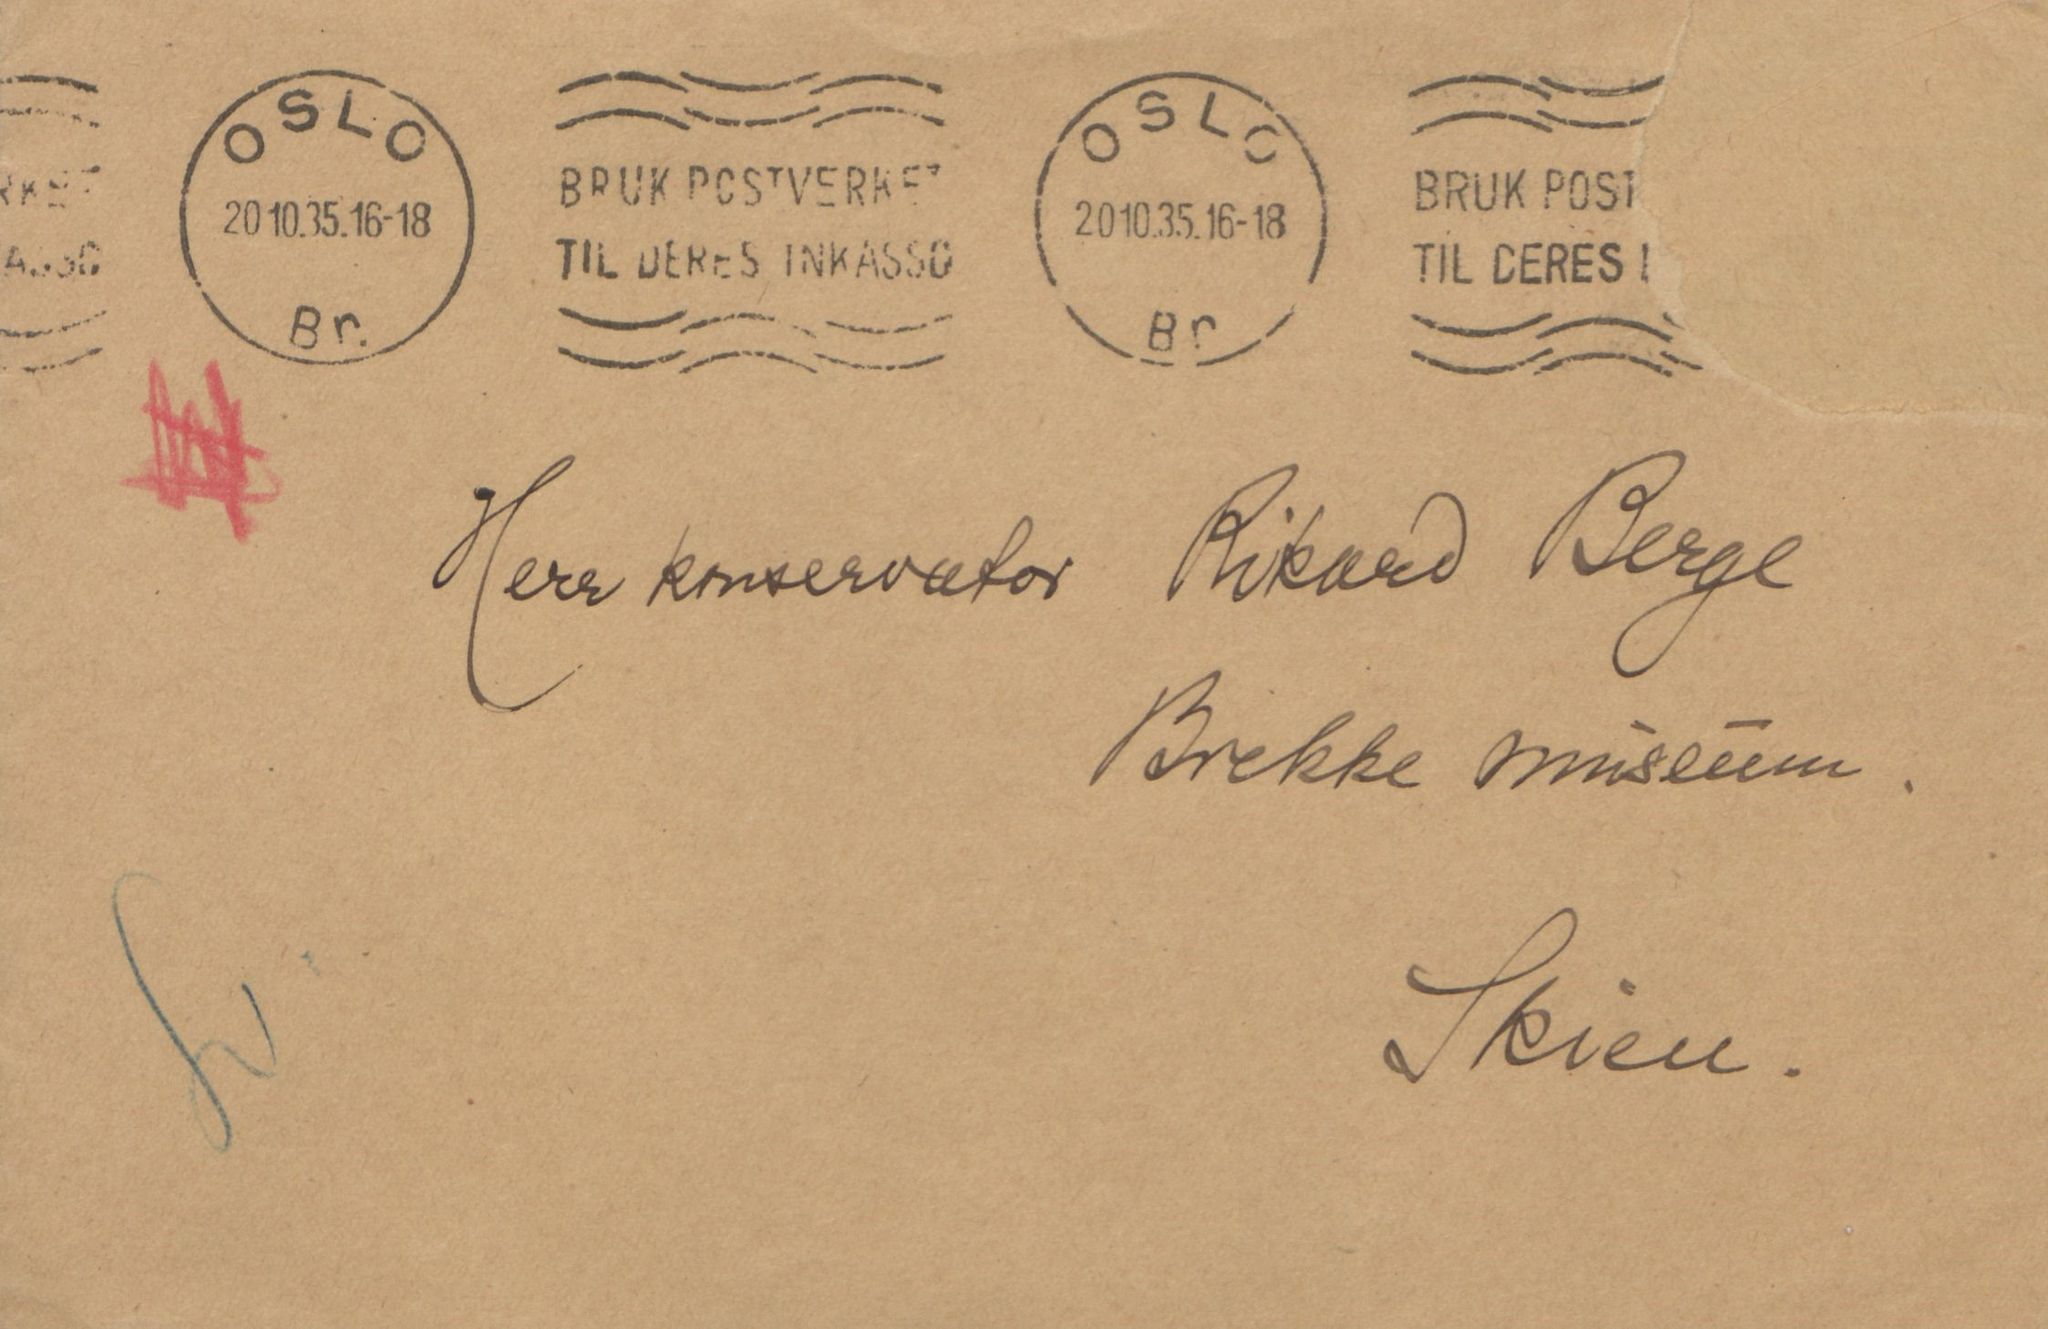 OSLO
20 10.35.16-18
Br.
BRUK POSTVERKET
TIL DERES INKASSO
OSLO
20 10.35.16-18
Br
BRUK POST
TIL DERES I
RKET
ASSO
Herr konservator Rikard Berge
Brekke museum.
Skien.